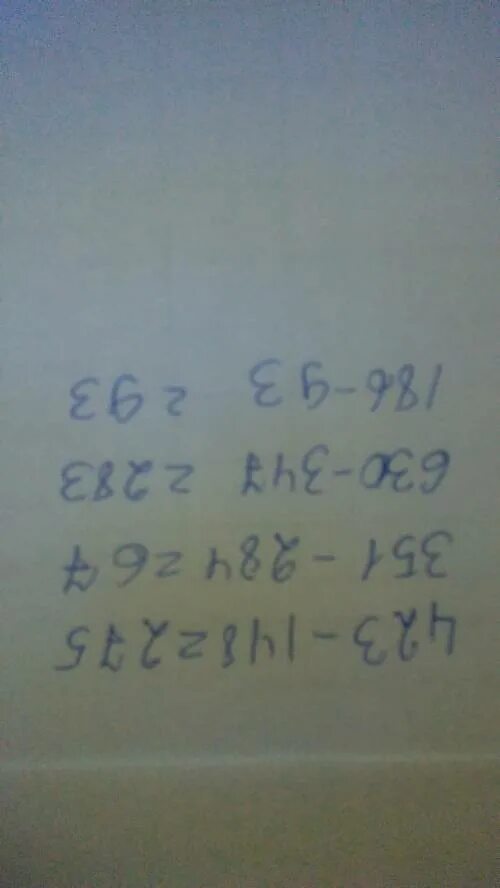 423-148=275
351-284=67
630-347=283
186-93=93